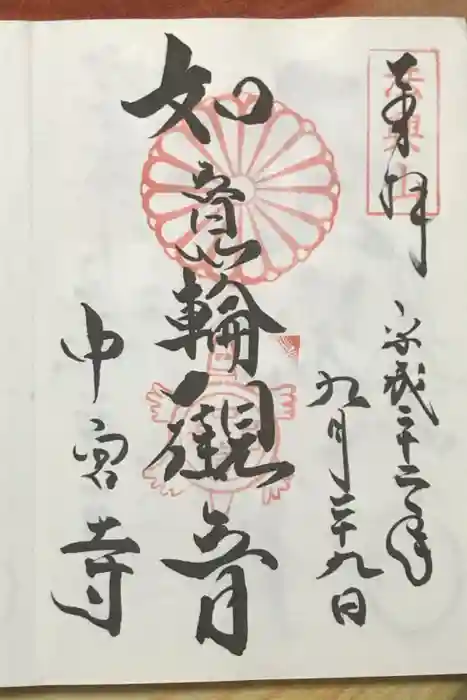 法興山
奉拝
平成二十二年
九月二十九日
如意輪観音
中宮寺